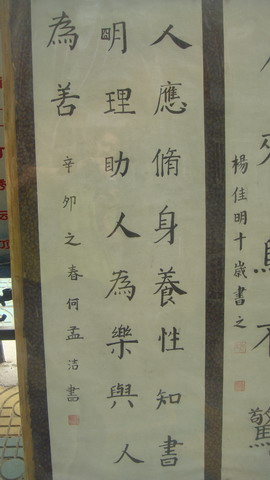 人應脩身養性知書
明理助人為樂與人
為善
辛卯之春何孟洁書
楊佳明十歲書之